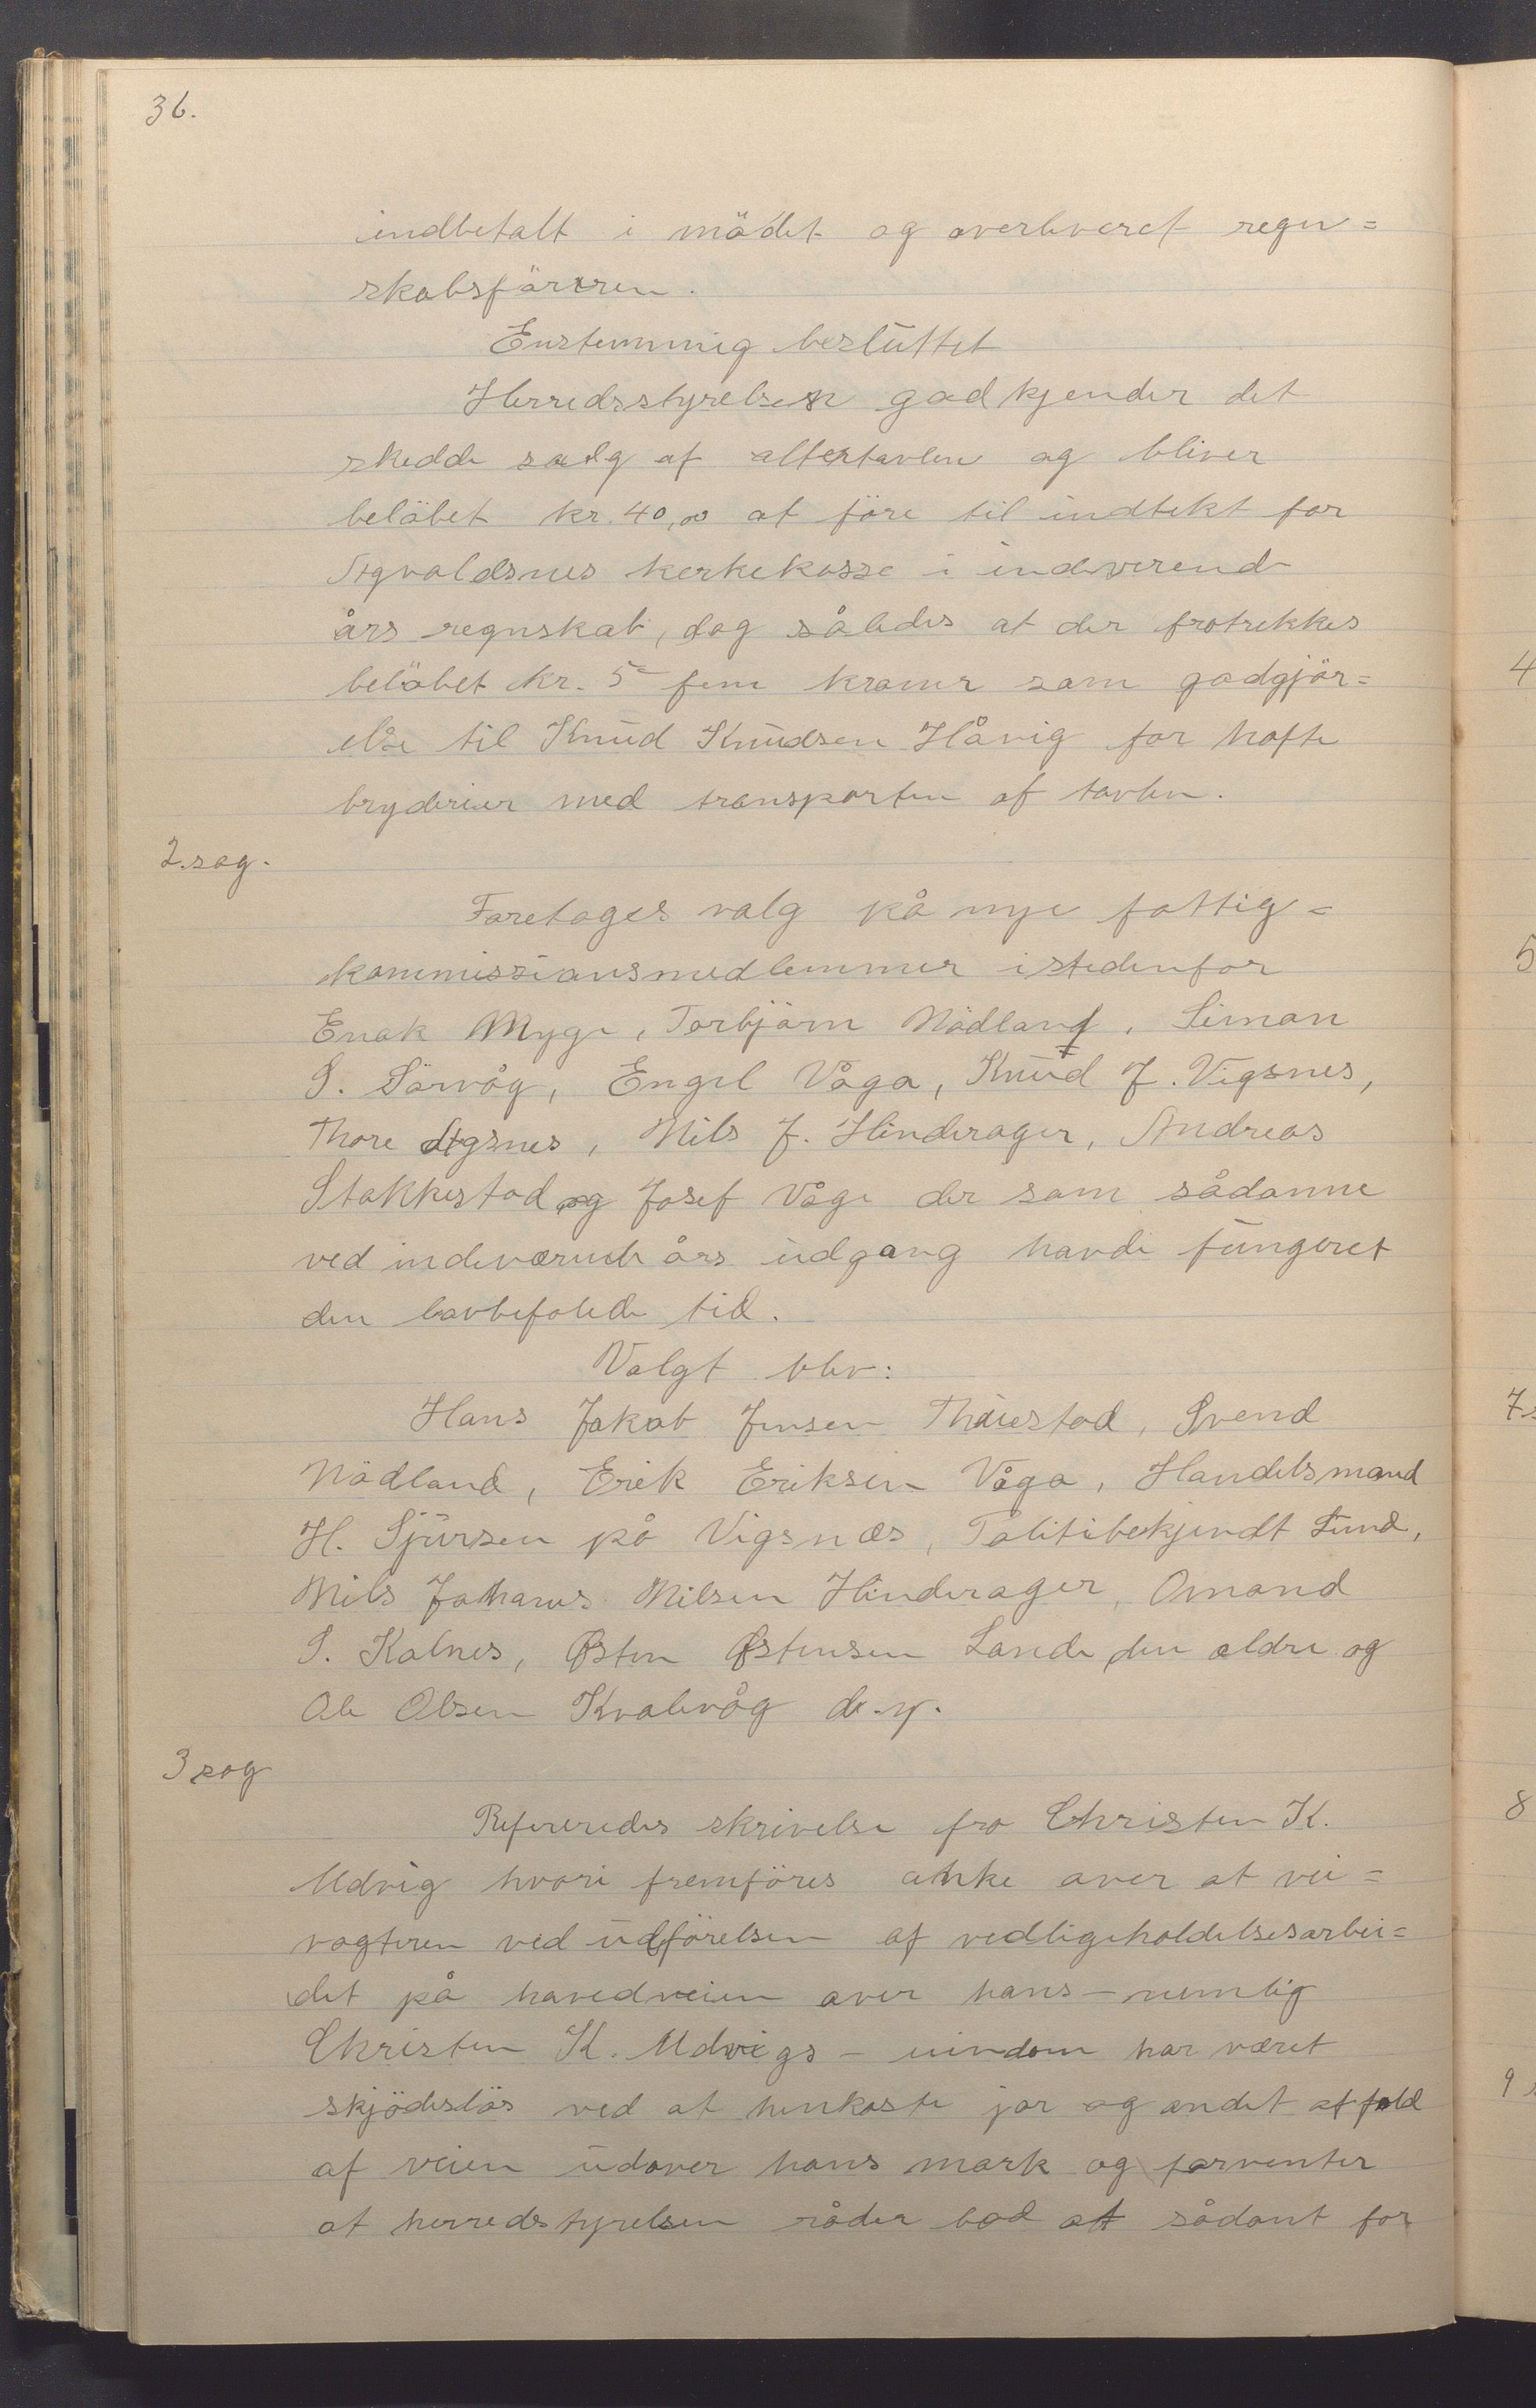 36.
indbetalt i mödet og overleveret regn=
skabsföreren.
Enstemmig besluttet
Herredsstyrelsen godkjender det
skedde salg af altertavlen og bliver
belöbet kr. 40,00 at före til indtekt for
Agvaldsnes kerkekasse i indeverende
års regnskab, dog således at der fratrekkes
belöbet kr. 5 fem kroner som godgjör=
else til Knud Knudsen Håvig for hafte
bryderier med transporten af tavlen.
2. sag.
Foretages valg på nye fattig=
kommissionsmedlemmer istedenfor
Enok Myge, Torbjörn Nödland, Simon
S. Sörvåg, Engel Våga, Knud J. Vigsnes,
Thore Lygsnes, Nils J. Hinderager, Andreas
Stakkestad og Josef Våge der som sådanne
ved indeværende års udgang havde fungeret
den lovbefalede tid.
Valgt blev:
Hans Jakob Jensen Thöiestad, Svend
Nödland, Erik Eriksen Våga, Handelsmand
H. Sjursen på Vigsnæs, Politibetjendt Lund,
Nils Johannes Nilsen Hinderager, Omand
S. Kalnes, Østen Østensen Lande den eldre og
Ole Olsen Kvalevåg d. y.
3 sag
Refereredes skrivelse fra Christen K.
Udvig hvori fremföres anke over at vei=
vogteren ved udförelsen af vedligeholdelsesarbei=
det på hovedveien over hans - nemlig
Christen K. Udvigs - eiendom har været
skjödeslös ved at henkaste jor og andet affald
af veien udover hans mark og forventer
at herredstyrelsen råder bod at sådant for
4
5
7 s
8
9 s